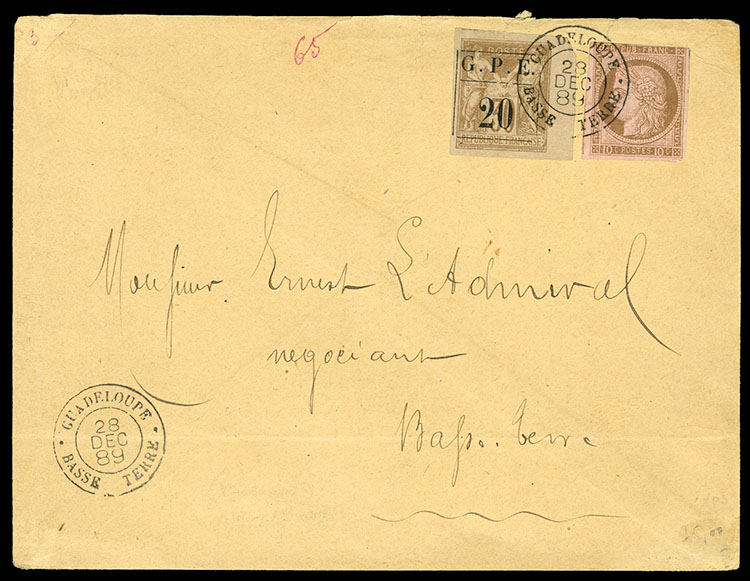 65
POSTES
G. P. E.
20
REPUBLIQUE FRANÇAISE
GUADELOUPE
28
DEC
89
BASSE TERRE
REPUB · FRANC ·
10 C · POSTES · 10 C
Monsieur Ernest L'Admiral
negociant
Basse-terre
GUADELOUPE
28
DEC
89
BASSE TERRE